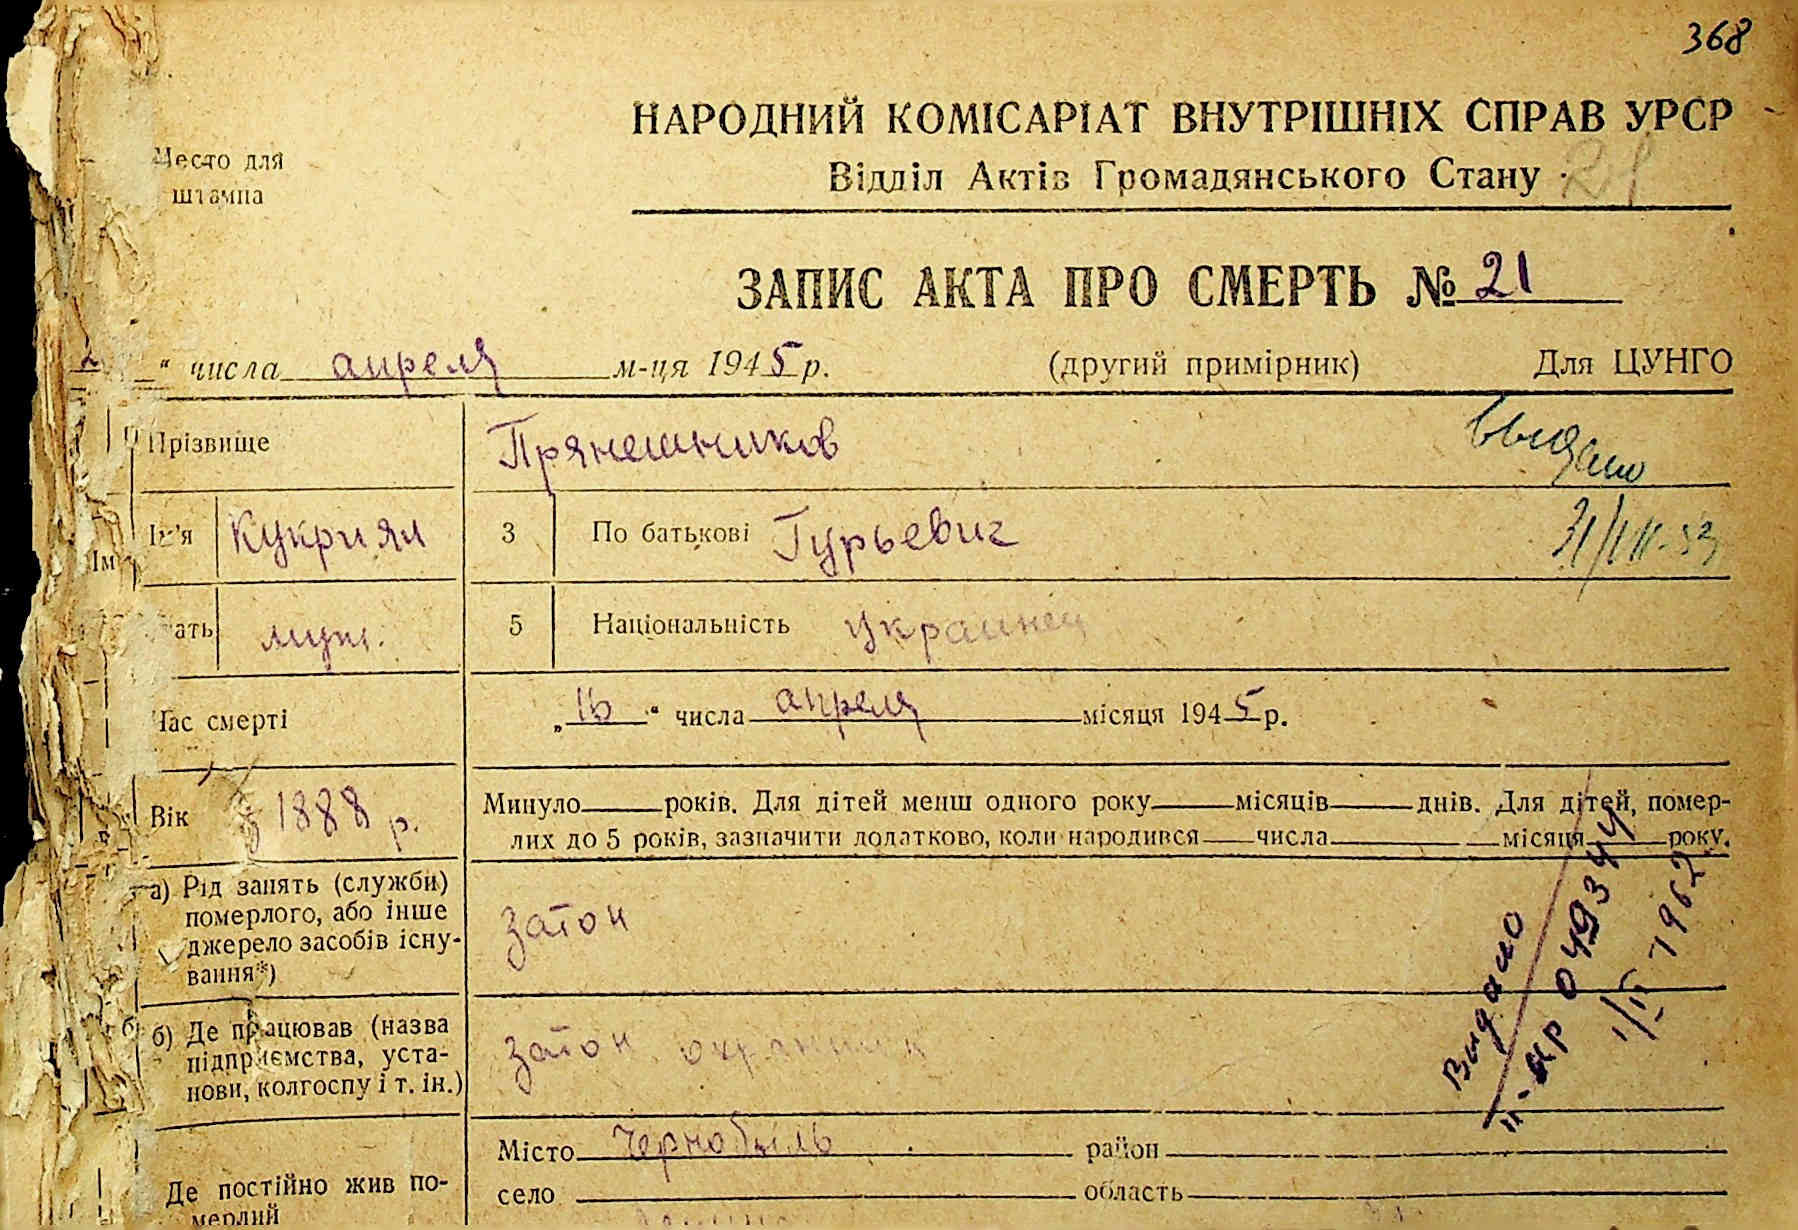 368
НАРОДНИЙ КОМІСАРІАТ ВНУТРІШНІХ СПРАВ УРСР
Место для
штампа
Відділ Актів Громадянського Стану
21
ЗАПИС АКТА ПРО СМЕРТЬ № 21
“ числа апреля м-ця 1945 р. (другий примірник) Для ЦУНГО
Прізвище Прянешников выдано
Ім'я Кукриян 3 По батькові Гурьевич 31/VII-53
ать муж. 5 Національність украинец
Час смерті „16“ числа апреля місяця 1945 р.
Вік 1888 р. Минуло ____ років. Для дітей менш одного року ____ місяців ____ днів. Для дітей, помер-
лих до 5 років, зазначити додатково, коли народився ____ числа ____ місяця ____ року.
а) Рід занять (служби)
померлого, або інше
джерело засобів існу-
вання*)
Затон
б) Де працював (назва
підприємства, уста-
нови, колгоспу і т. ін.)
Затон охранник
Видано
II-яр 049344
1/IV 1962
Де постійно жив по-
мерлий
Місто Чернобиль район
село область